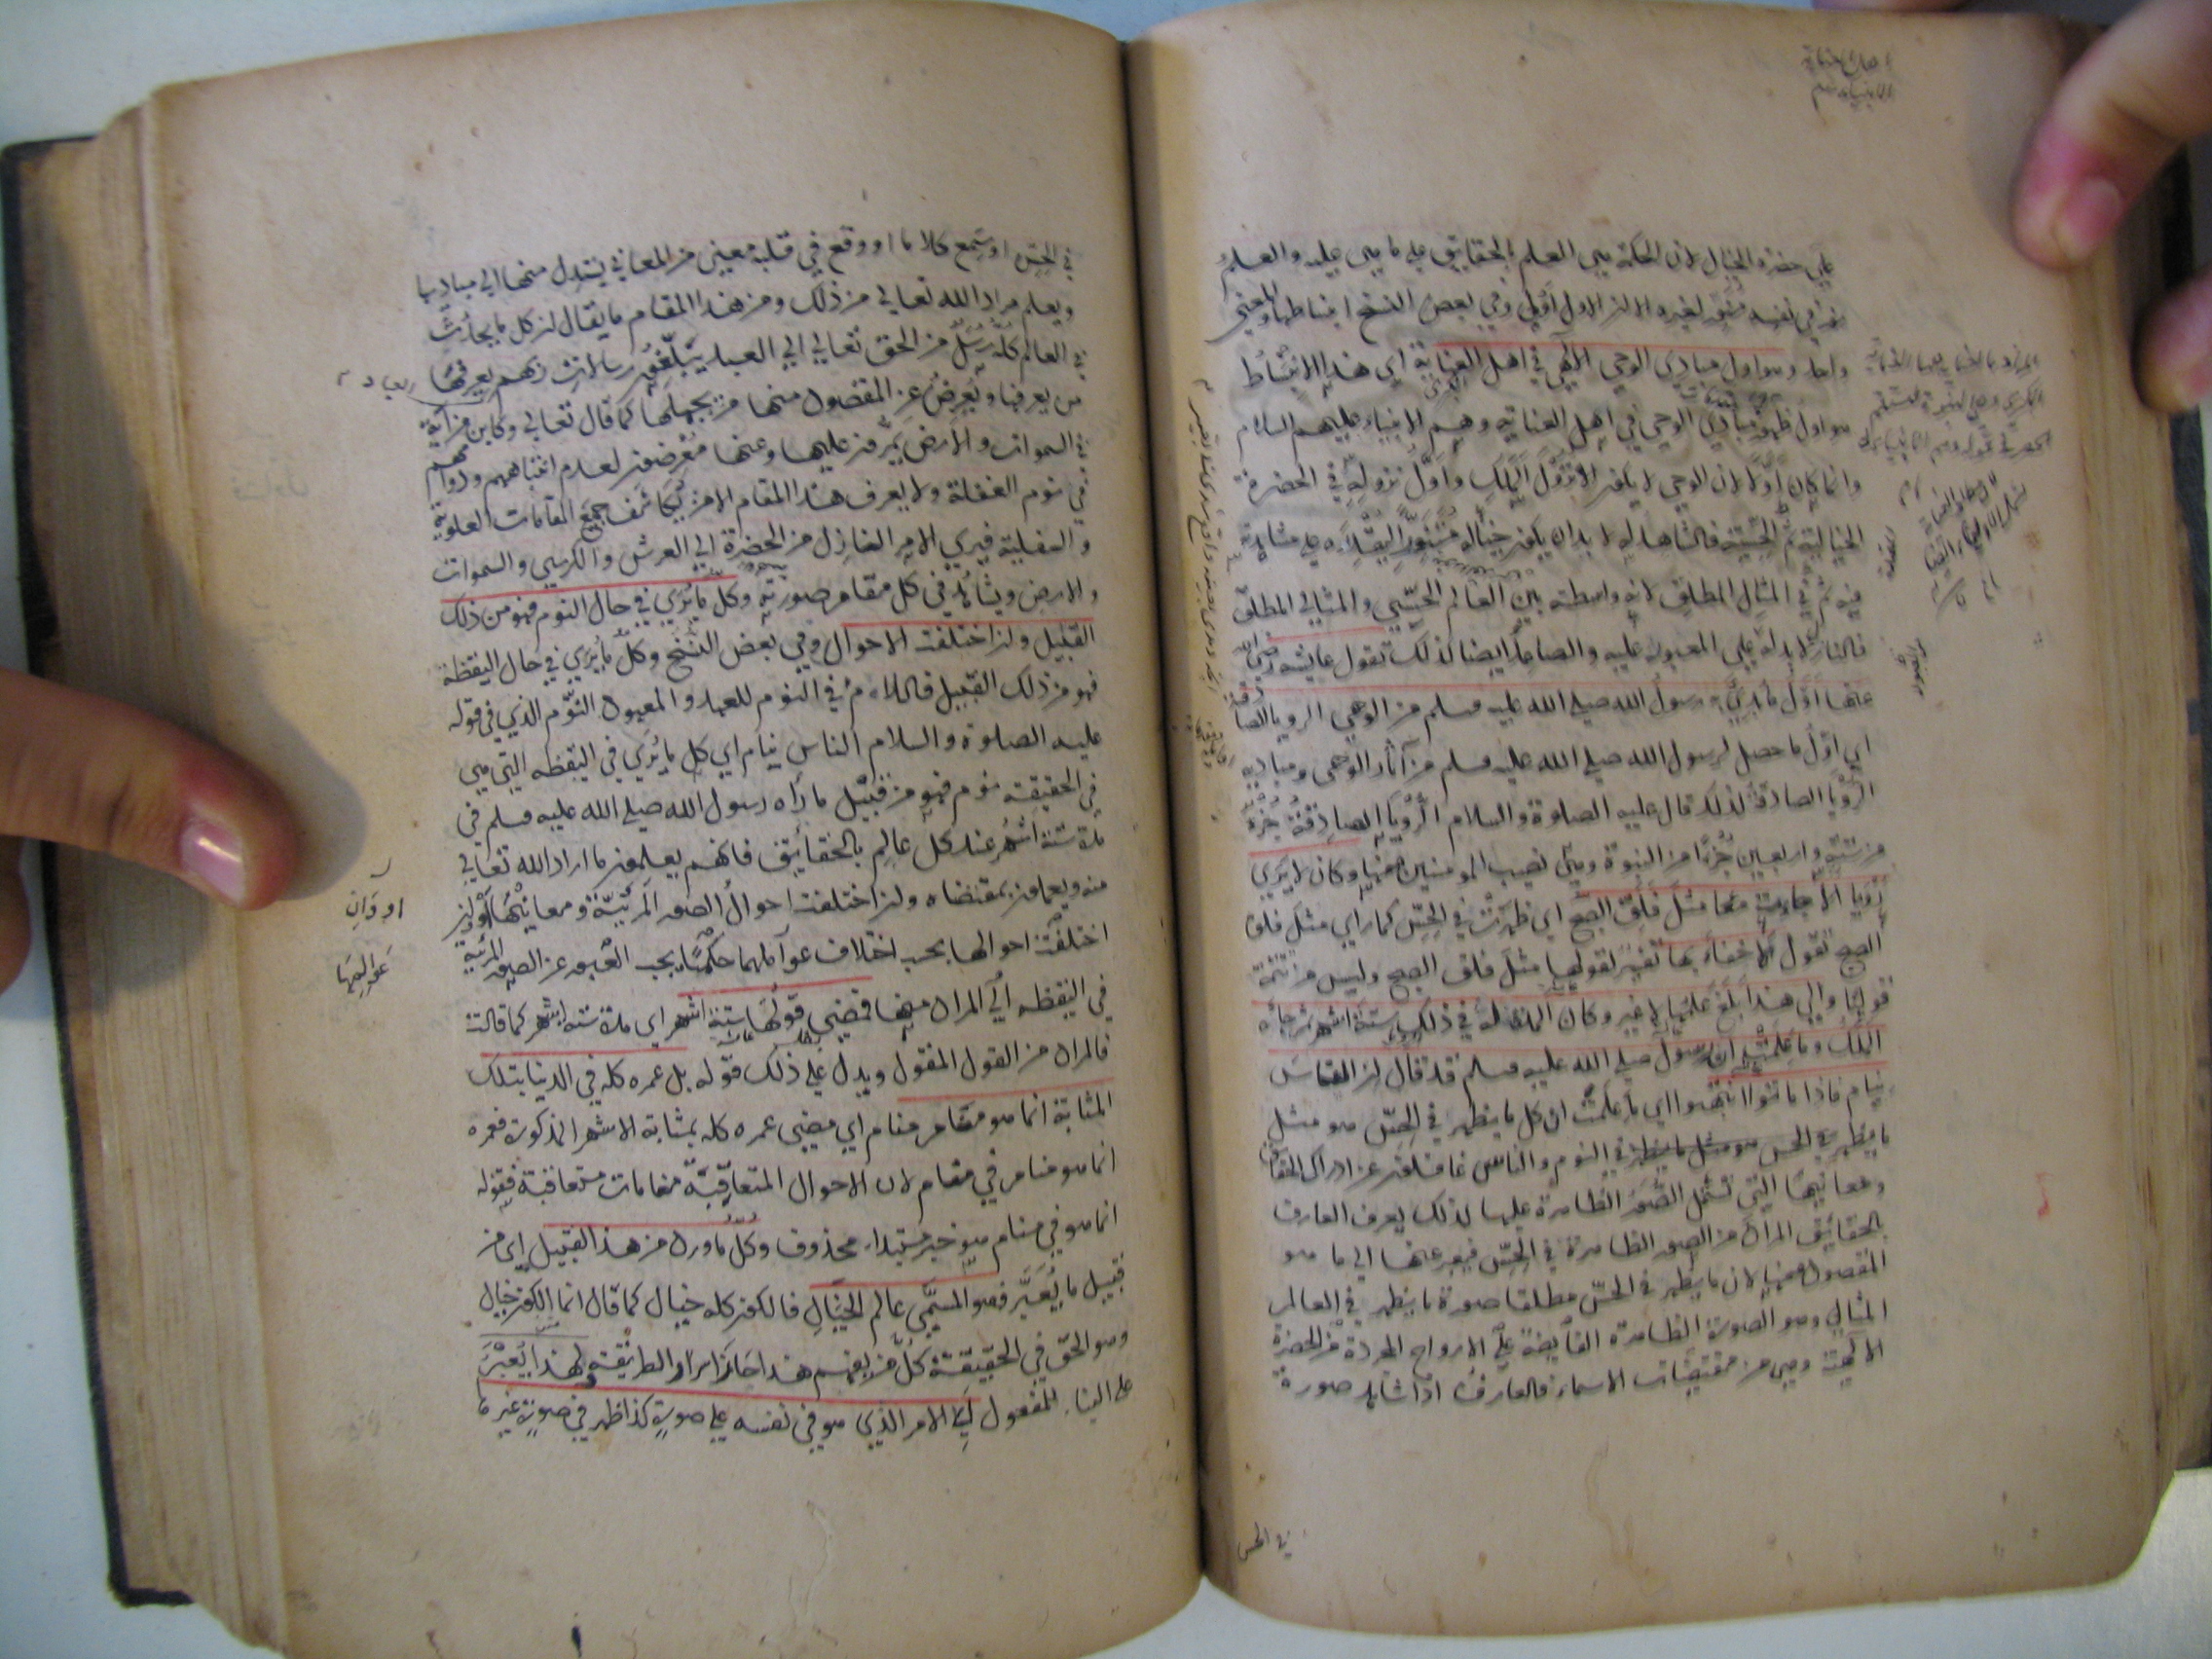 علي حضرة الخيال لان الحكمة هي العلم بالحقايق علي ما هي عليه والعلم
نور في نفسه منور لغيره الا ان الاول اولي وفي بعض النسخ انبساطها والمعني
واحد وهو اول مبادي الوحي الالهي في اهل العناية اي هذا الانبساط
هو اول ظهور مبادي الوحي في اهل العناية وهم الانبياء عليهم السلام
وانما كان اولا لان الوحي لا يكون الا بنزول الملك واول نزوله في الحضرة
الخيالية ثم الحسية فالشاهد له لا بد ان يكون خياله متنورا ليقدر علي مشاهدته
فيه ثم في المثال المطلق لانه واسطة بين العالم الحسي والمثالي المطلق
فالنازل لا بد له علي العبور عليه والصاعد ايضا كذلك تقول عايشة رضي الله
عنها اول ما بدئ به رسول الله صلي الله عليه وسلم من الوحي الرويا الصادقة
اي اول ما حصل لرسول الله صلي الله عليه وسلم من آثار الوحي ومباديه
الرؤيا الصادقة لذلك قال عليه الصلوة والسلام الرؤيا الصادقة جزء
من ستة واربعين جزءا من النبوة وهي نصيب المومنين منها وكان لا يري
رؤيا الا جاءت مثل فلق الصبح اي ظهرت في الحس كما راي مثل فلق
الصبح تقول لا خفاء بها تفسير لقولها مثل فلق الصبح وليس من تتمة
قولها والي هنا بلغ علمها لا غير وكان المدة له في ذلك ستة اشهر ثم جاءه
الملك وما علمت ان رسول صلي الله عليه وسلم قد قال ان الناس
نيام فاذا ماتوا انتبهوا اي ما علمت ان كل ما يظهر في الحس هو مثل
ما يظهر في الحس هو مثل ما يظهر في النوم والناس غافلون عن ادراك الحقايق
ومعانيها التي تشتمل الصور الظاهرة عليها لذلك يعرف العارف
بالحقايق المراد من الصور الظاهرة في الحس فيعبر عنها الي ما هو
المقصود منها لان ما يظهر في الحس مطلقا صورة ما يظهر في العالم
المثالي وهو الصورة الظاهرة الفايضة علي الارواح المجردة من الحضرة
الالهية وهي من مقتضيات الاسماء فالعارف اذا شاهد صورة
في الحس
في الحس او سمع كلاما او وقع في قلبه معني من المعاني يستدل منها الي مباديها
ويعلم مراد الله تعالي من ذلك ومن هذا المقام ما يقال ان كل ما يحدث
في العالم كله رسل من الحق تعالي الي العبد يبلغون رسالات ربهم يعرفها
من يعرفها ويعرض عن المقصود منها من يجهلها كما قال تعالي وكاين من آية
في السموات والارض يمرون عليها وهم عنها معرضون لعدم انتباههم ودوامهم
في نوم الغفلة ولا يعرف هذا المقام الا من يكاشف جميع المقامات العلوية
والسفلية فيري الامر النازل من الحضرة الي العرش والكرسي والسموات
والارض ويشاهد في كل مقام صورته وكل ما يري في حال النوم فهو من ذلك
القبيل وان اختلفت الاحوال وفي بعض النسخ وكل ما يري في حال اليقظة
فهو من ذلك القبيل فاللام في النوم للعهد والمعهود النوم الذي في قوله
عليه الصلوة والسلام الناس نيام اي كل ما يري في اليقظه التي هي
في الحقيقة نوم فهو من قبيل ما رآه رسول الله صلي الله عليه وسلم في
مدة ستة اشهر عند كل عالم بالحقايق فانهم يعلمون ما اراد الله تعالي
منه ويعملون بمقتضاه وان اختلفت احوال الصور المرئية ومعانيها
اختلفت احوالها بحسب اختلاف عوالمها حكمها بحسب العبور عن الصور المرئية
في اليقظه الي المراد منها فمضي قولها ستة اشهر اي مدة ستة اشهر كما قالت
فالمراد من القول المقول ويدل علي ذلك قوله بل عمره كله في الدنيا بتلك
المثابة انما هو منام في منام اي مضي عمره كله بمثابة الاشهر المذكورة فعمره
انما هو منام في منام لان الاحوال المتعاقبة مقامات متعاقبة فقوله
انما هو في منام هو خبر مبتداء محذوف وكل ما ورد من هذا القبيل اي من
قبيل ما يعبر فهو المسمي عالم الخيال فالكون كله خيال كما قال انما الكون خيال
وهو الحق في الحقيقة كل من يفهم هذا حاز اسرار الطريقة ولهذا يعبر
علي البناء للمفعول اي الامر الذي هو في نفسه علي صورة كذا ظهر في صورة غيرها
او وان
عوالمها